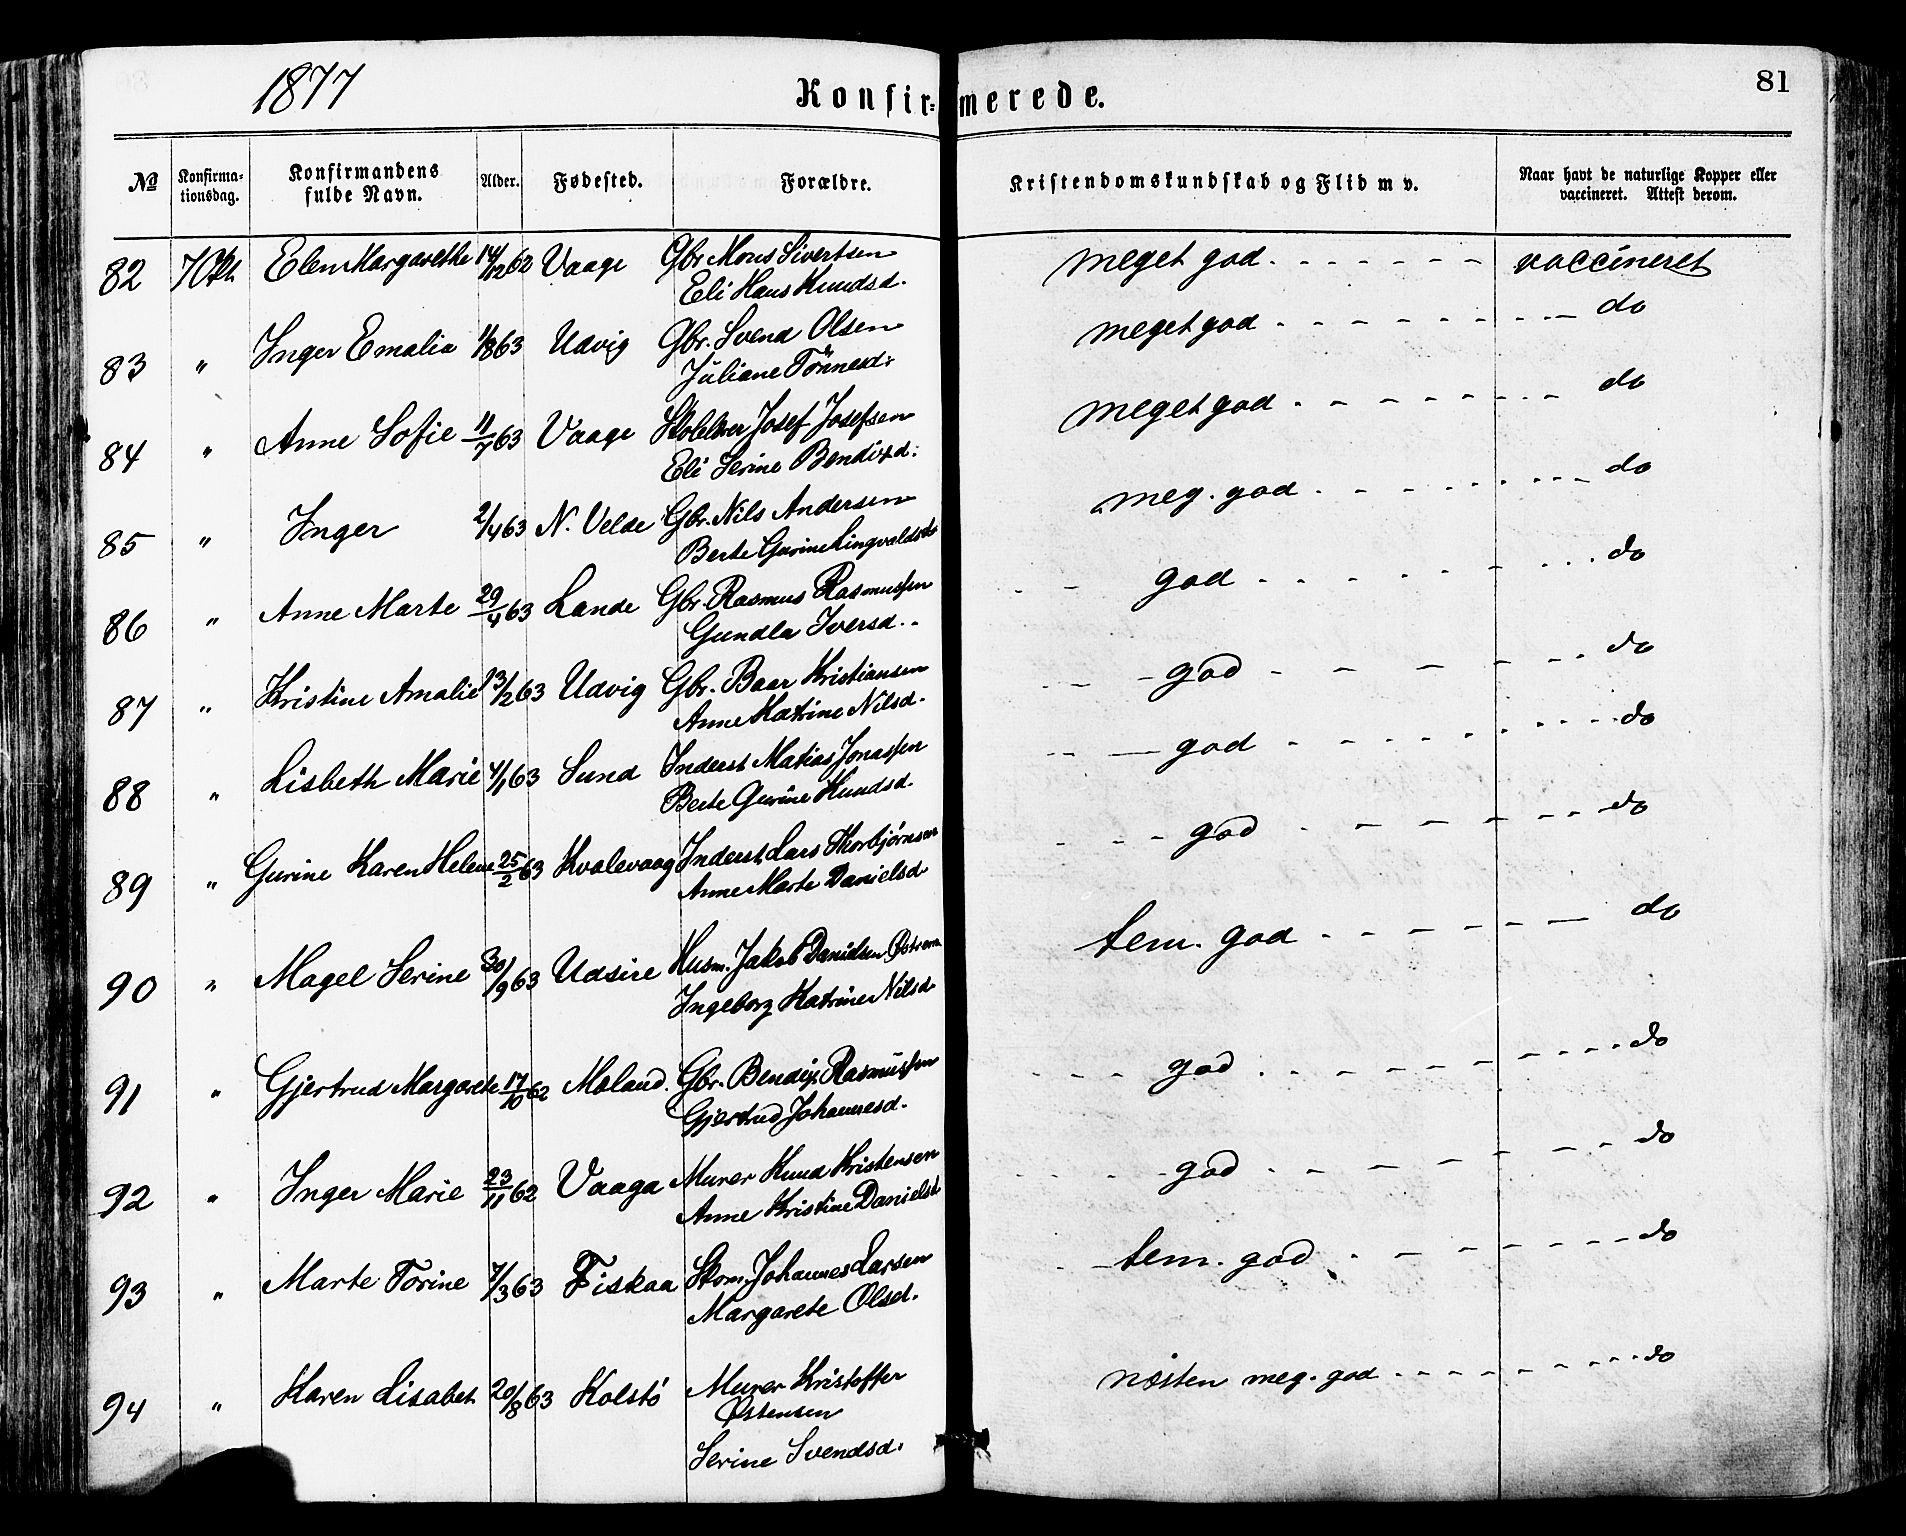 1877 Konfir-merede. 81
№ Konfirma-tionsdag. Konfirmandens fulde Navn. Alder. Fødested. Forældre. Kristendomskundskab og Flid m v. Naar havt de naturlige Kopper eller vaccineret. Attest derom.
82 7 Okt Elen Margarethe 14/12 62 Vaage Gbr. Mons Sivertsen meget god - - - - - - vaccineret
Eli Hans Knudsd.
83 " Inger Emalia 1/8 63 Udvig Gbr. Svend Olsen meget god - - - - - - do
Juliane Tönnesd:
84 " Anne Sofie 11/7 63 Vaage Josef Josefsen meget god - - - - - - do
Eli Serine Bendixd:
85 " Inger 2/4 63 N. Velde Gbr. Nils Andersen meg. god - - - - - - do
Berte Gurine Lingvaldsd
86 " Anne Marte 29/4 63 Lande Gbr. Rasmus Rasmussen - - god - - - - - - do
Gundla Iversd..
87 " Kristine Amalie 13/2 63 Udvig Gbr. Baar Kristiansen - - - god - - - - - - do
Anne Katrine Nilsd.
88 " Lisbeth Marie 4/1 63 Sund Inderst Matias Jonassen - - - god - - - - - - do
Berte Gurine Knudsd.
89 " Gurine Karen Helene 25/2 63 Kvalevaag Inderst Lars Thorbjørnsen - - - god - - - - - - do
Anne Marte Danielsd
90 " Magel Serine 30/9 63 Udsire Husm. Jakob Danielsen tem. god - - - - - - do
Ingeborg Katrine Nilsd
91 " Gjertrud Margarete 17/10 62 Moland. Gbr. Bendix Rasmussen - - - god - - - - - - do
Gjertrud Johannesd.
92 " Inger Marie 23/11 62 Vaaga Murer Knud Kristensen - - - god - - - - - - do
Anne Kristine Danielsd
93 " Marte Torine 7/3 63 Fiskaa Skom. Johannes Larsen - - tem. god - - - - - - do
Margarete Olsd.
94 " Karen Lisabet 20/8 63 Kolstö Murer Kristoffer næsten meg. god - - - - - - do
Østensen
Serine Svendsd.